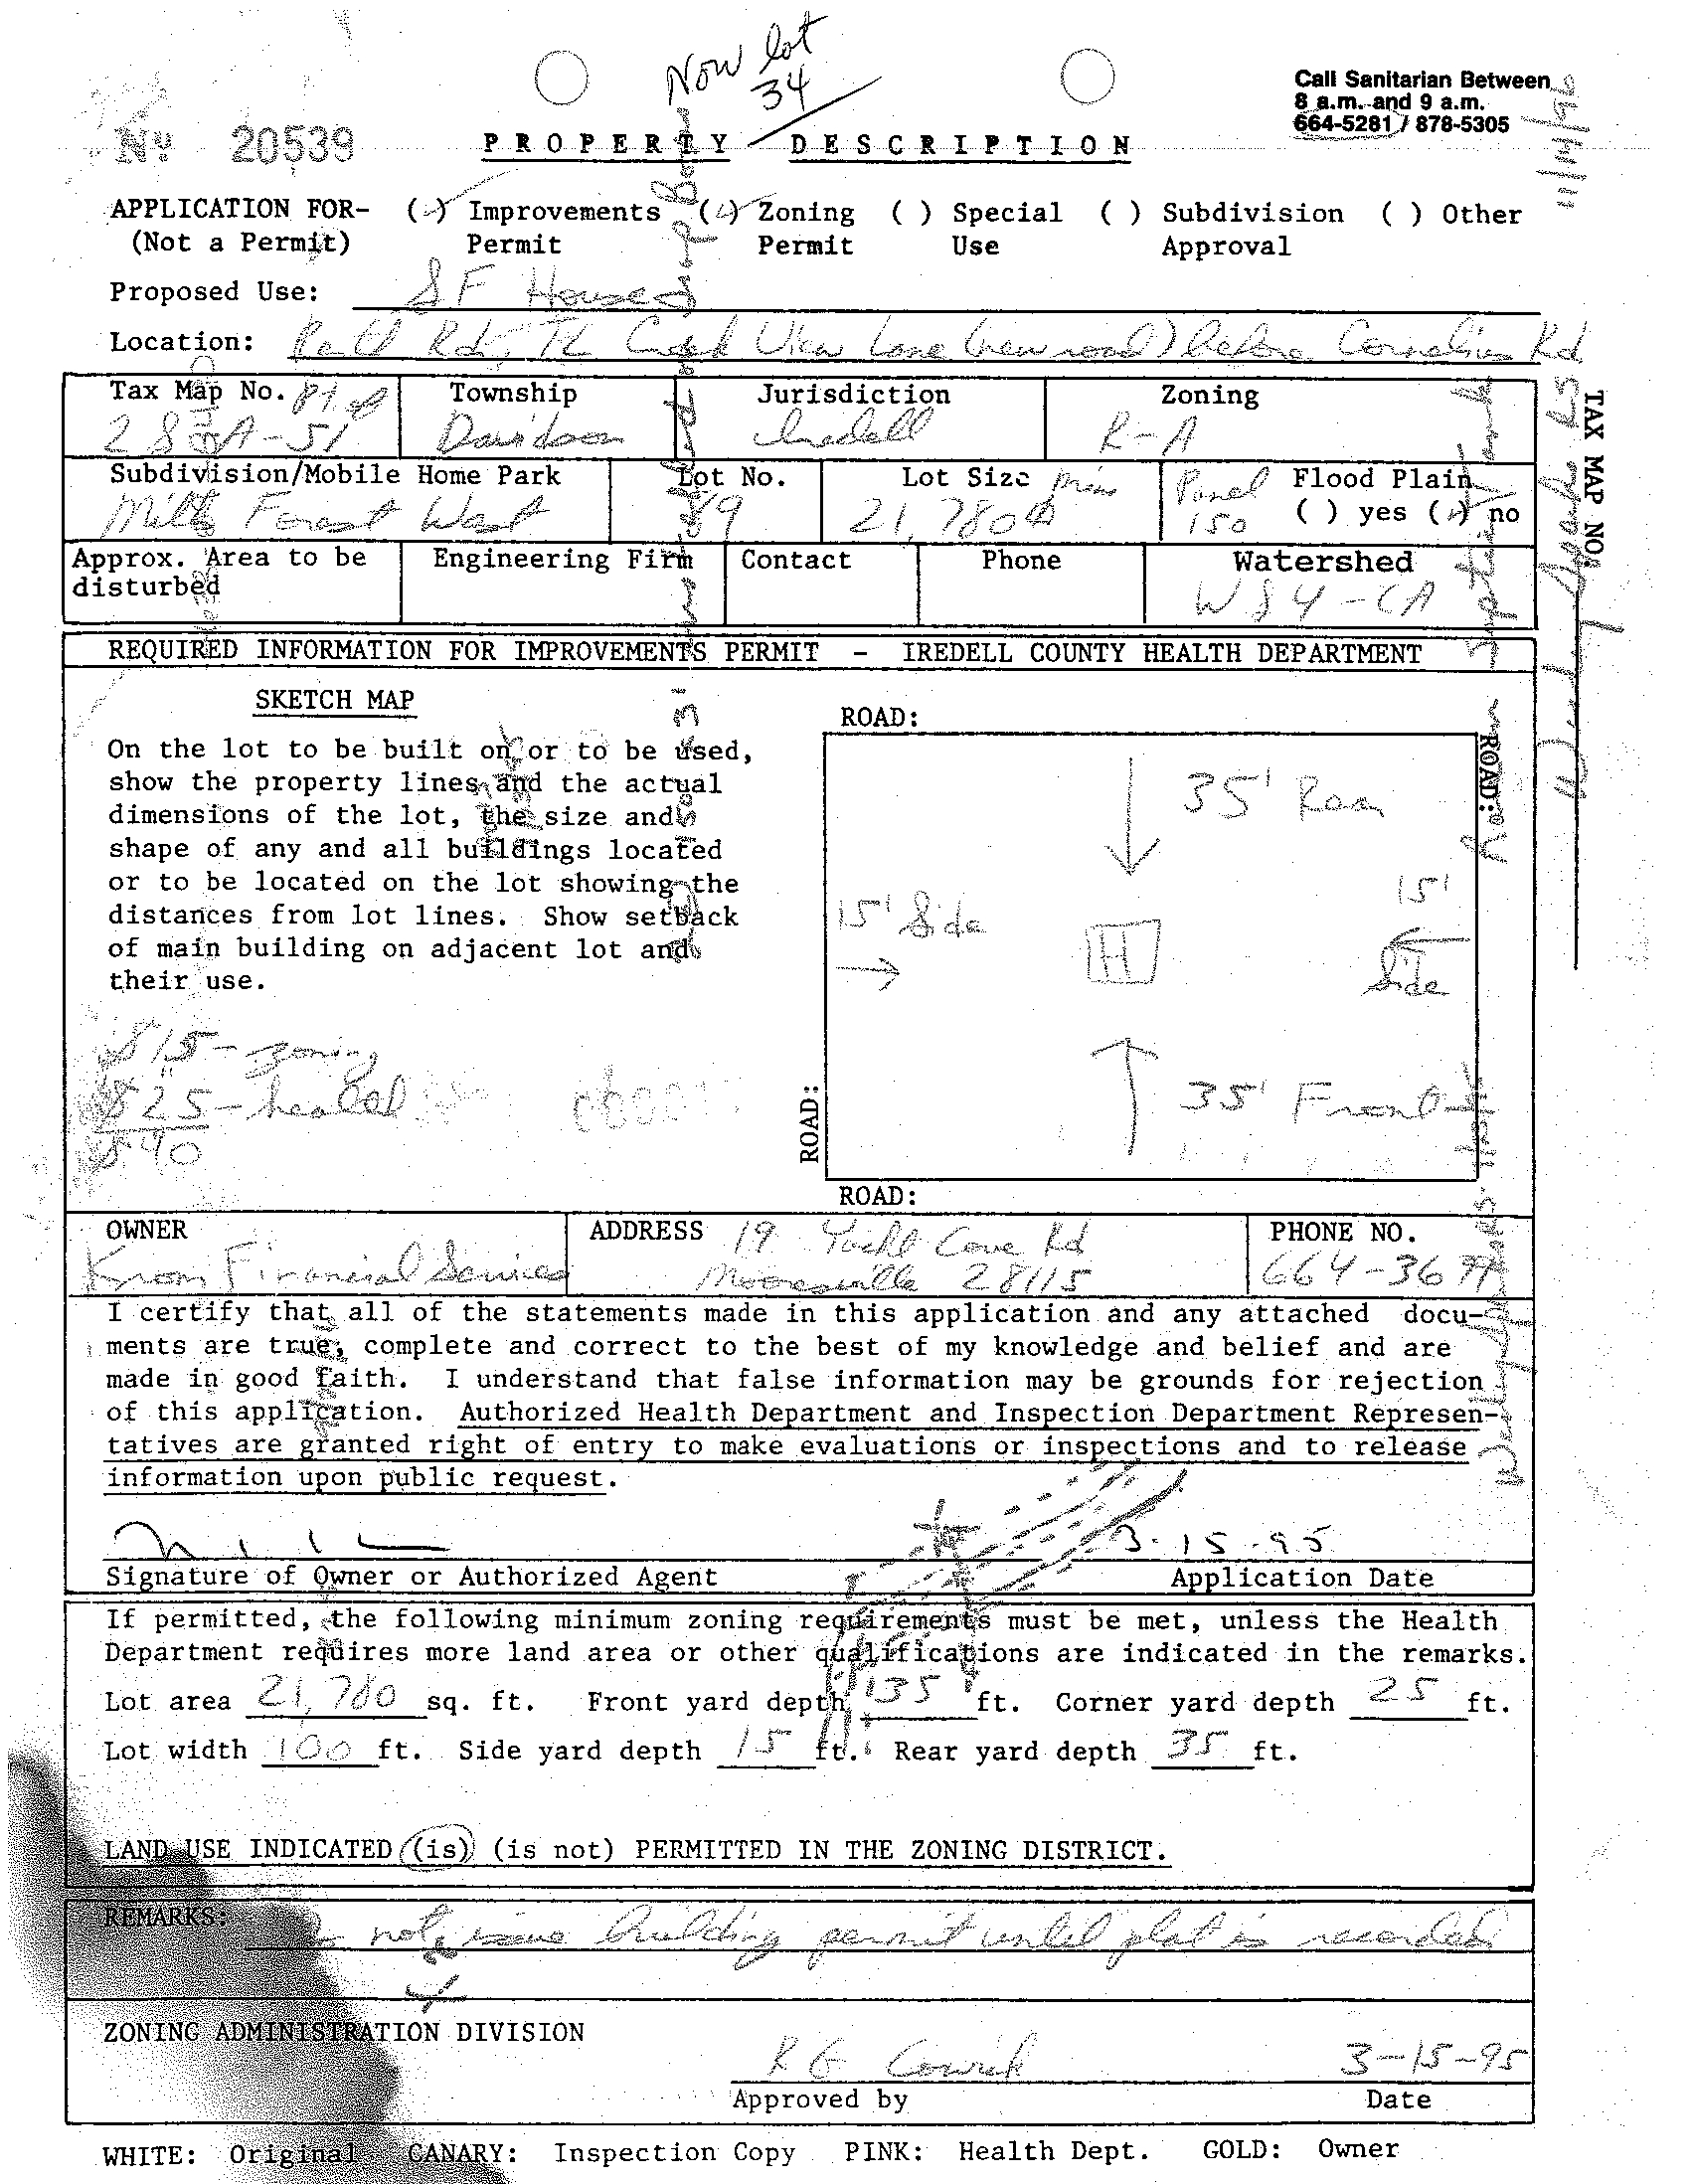 Now lot
34
Call Sanitarian Between
8 a.m. and 9 a.m.
664-5281 / 878-5305
Nº 20539
PROPERTY DESCRIPTION
APPLICATION FOR- ( ) Improvements ( ) Zoning ( ) Special ( ) Subdivision ( ) Other
(Not a Permit) Permit Permit Use Approval
Proposed Use: SF House
Location: Rd, View Lane (new road) before Cornelius Rd
Tax Map No. Township Jurisdiction Zoning
Davidson Iredell R-A
Subdivision/Mobile Home Park Lot No. Lot Size min Panel Flood Plain
Mills Forest West 89 21,780 150 ( ) yes ( ) no
Approx. Area to be Engineering Firm Contact Phone Watershed
disturbed
WS4-CA
TAX MAP NO.
REQUIRED INFORMATION FOR IMPROVEMENTS PERMIT - IREDELL COUNTY HEALTH DEPARTMENT
SKETCH MAP
On the lot to be built on or to be used,
show the property lines and the actual
dimensions of the lot, the size and
shape of any and all buildings located
or to be located on the lot showing the
distances from lot lines. Show setback
of main building on adjacent lot and
their use.
$15 - zoning
$25 - health
$40
ROAD:
ROAD:
35' Rear
15' Side
H
15'
Side
35' Front
ROAD:
ROAD:
OWNER ADDRESS 19 Yacht Cove Rd PHONE NO.
Financial Services Mooresville 28115 664-36
I certify that all of the statements made in this application and any attached docu-
ments are true, complete and correct to the best of my knowledge and belief and are
made in good faith. I understand that false information may be grounds for rejection
of this application. Authorized Health Department and Inspection Department Represen-
tatives are granted right of entry to make evaluations or inspections and to release
information upon public request.
3-15-95
Signature of Owner or Authorized Agent Application Date
If permitted, the following minimum zoning requirements must be met, unless the Health
Department requires more land area or other qualifications are indicated in the remarks.
Lot area 21,780 sq. ft. Front yard depth 35 ft. Corner yard depth 25 ft.
Lot width 100 ft. Side yard depth 15 ft. Rear yard depth 35 ft.
LAND USE INDICATED (is) (is not) PERMITTED IN THE ZONING DISTRICT.
REMARKS: not issue building permit until plat is recorded
ZONING ADMINISTRATION DIVISION
3-15-95
Approved by Date
WHITE: Original CANARY: Inspection Copy PINK: Health Dept. GOLD: Owner